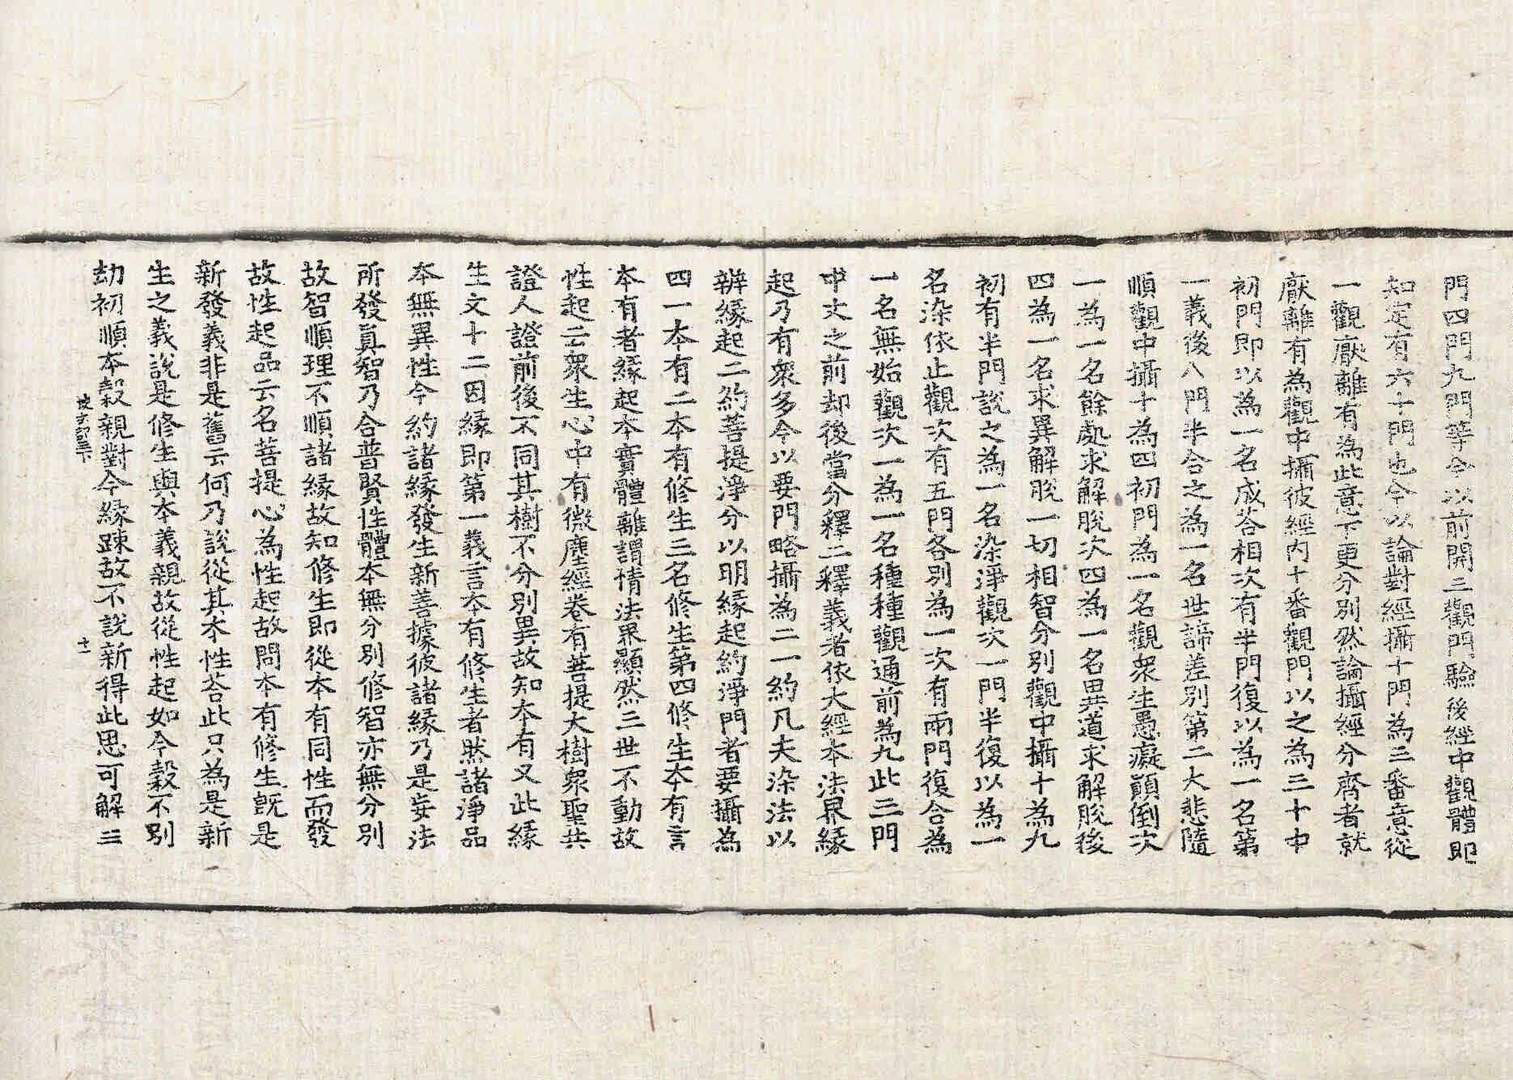 門四門九門等令以前開三觀門驗後經中觀體即
知定有六十門也令以論對經攝十門為三番意從
一觀厭離有為此意下更分別然論攝經分齊者就
厭離有為觀中攝彼經內十番觀門以之為三十中
初門即以為一名成荅相次有半門復以為一名第
一義後八門半合之為一名世諦差別第二大悲隨
順觀中攝十為四初門為一名觀衆生愚癡顛倒次
一為一名餘處求解脫次四為一名異道求解脫後
四為一名求異解脫一切相智分別觀中攝十為九
初有半門說之為一名染淨觀次一門半復以為一
名染依止觀次有五門各別為一次有兩門復合為
一名無始觀次一為一名種種觀通前為九此三門
中文之前却後當分釋二釋義者依大經本法界緣
起乃有衆多今以要門略攝為二一約凡夫染法以
辨緣起二約菩提淨分以明緣起約淨門者要攝為
四一本有二本有修生三名修生第四修生本有言
本有者緣起本實體離謂情法界顯然三世不動故
性起云衆生心中有微塵經卷有菩提大樹衆聖共
證人證前後不同其樹不分別異故知本有又此緣
生文十二因緣即第一義言本有修生者然諸淨品
本無異性今約諸緣發生新善據彼諸緣乃是妄法
所發真智乃合普賢性體本無分別修智亦無分別
故智順理不順諸緣故知修生即從本有同性而發
故性起品云名菩提心為性起故問本有修生旣是
新發義非是舊云何乃說從其本性荅此只為是新
生之義說是修生與本義親故從性起如今穀不別
劫初順本穀親對今緣踈故不說新得此思可解三
十一